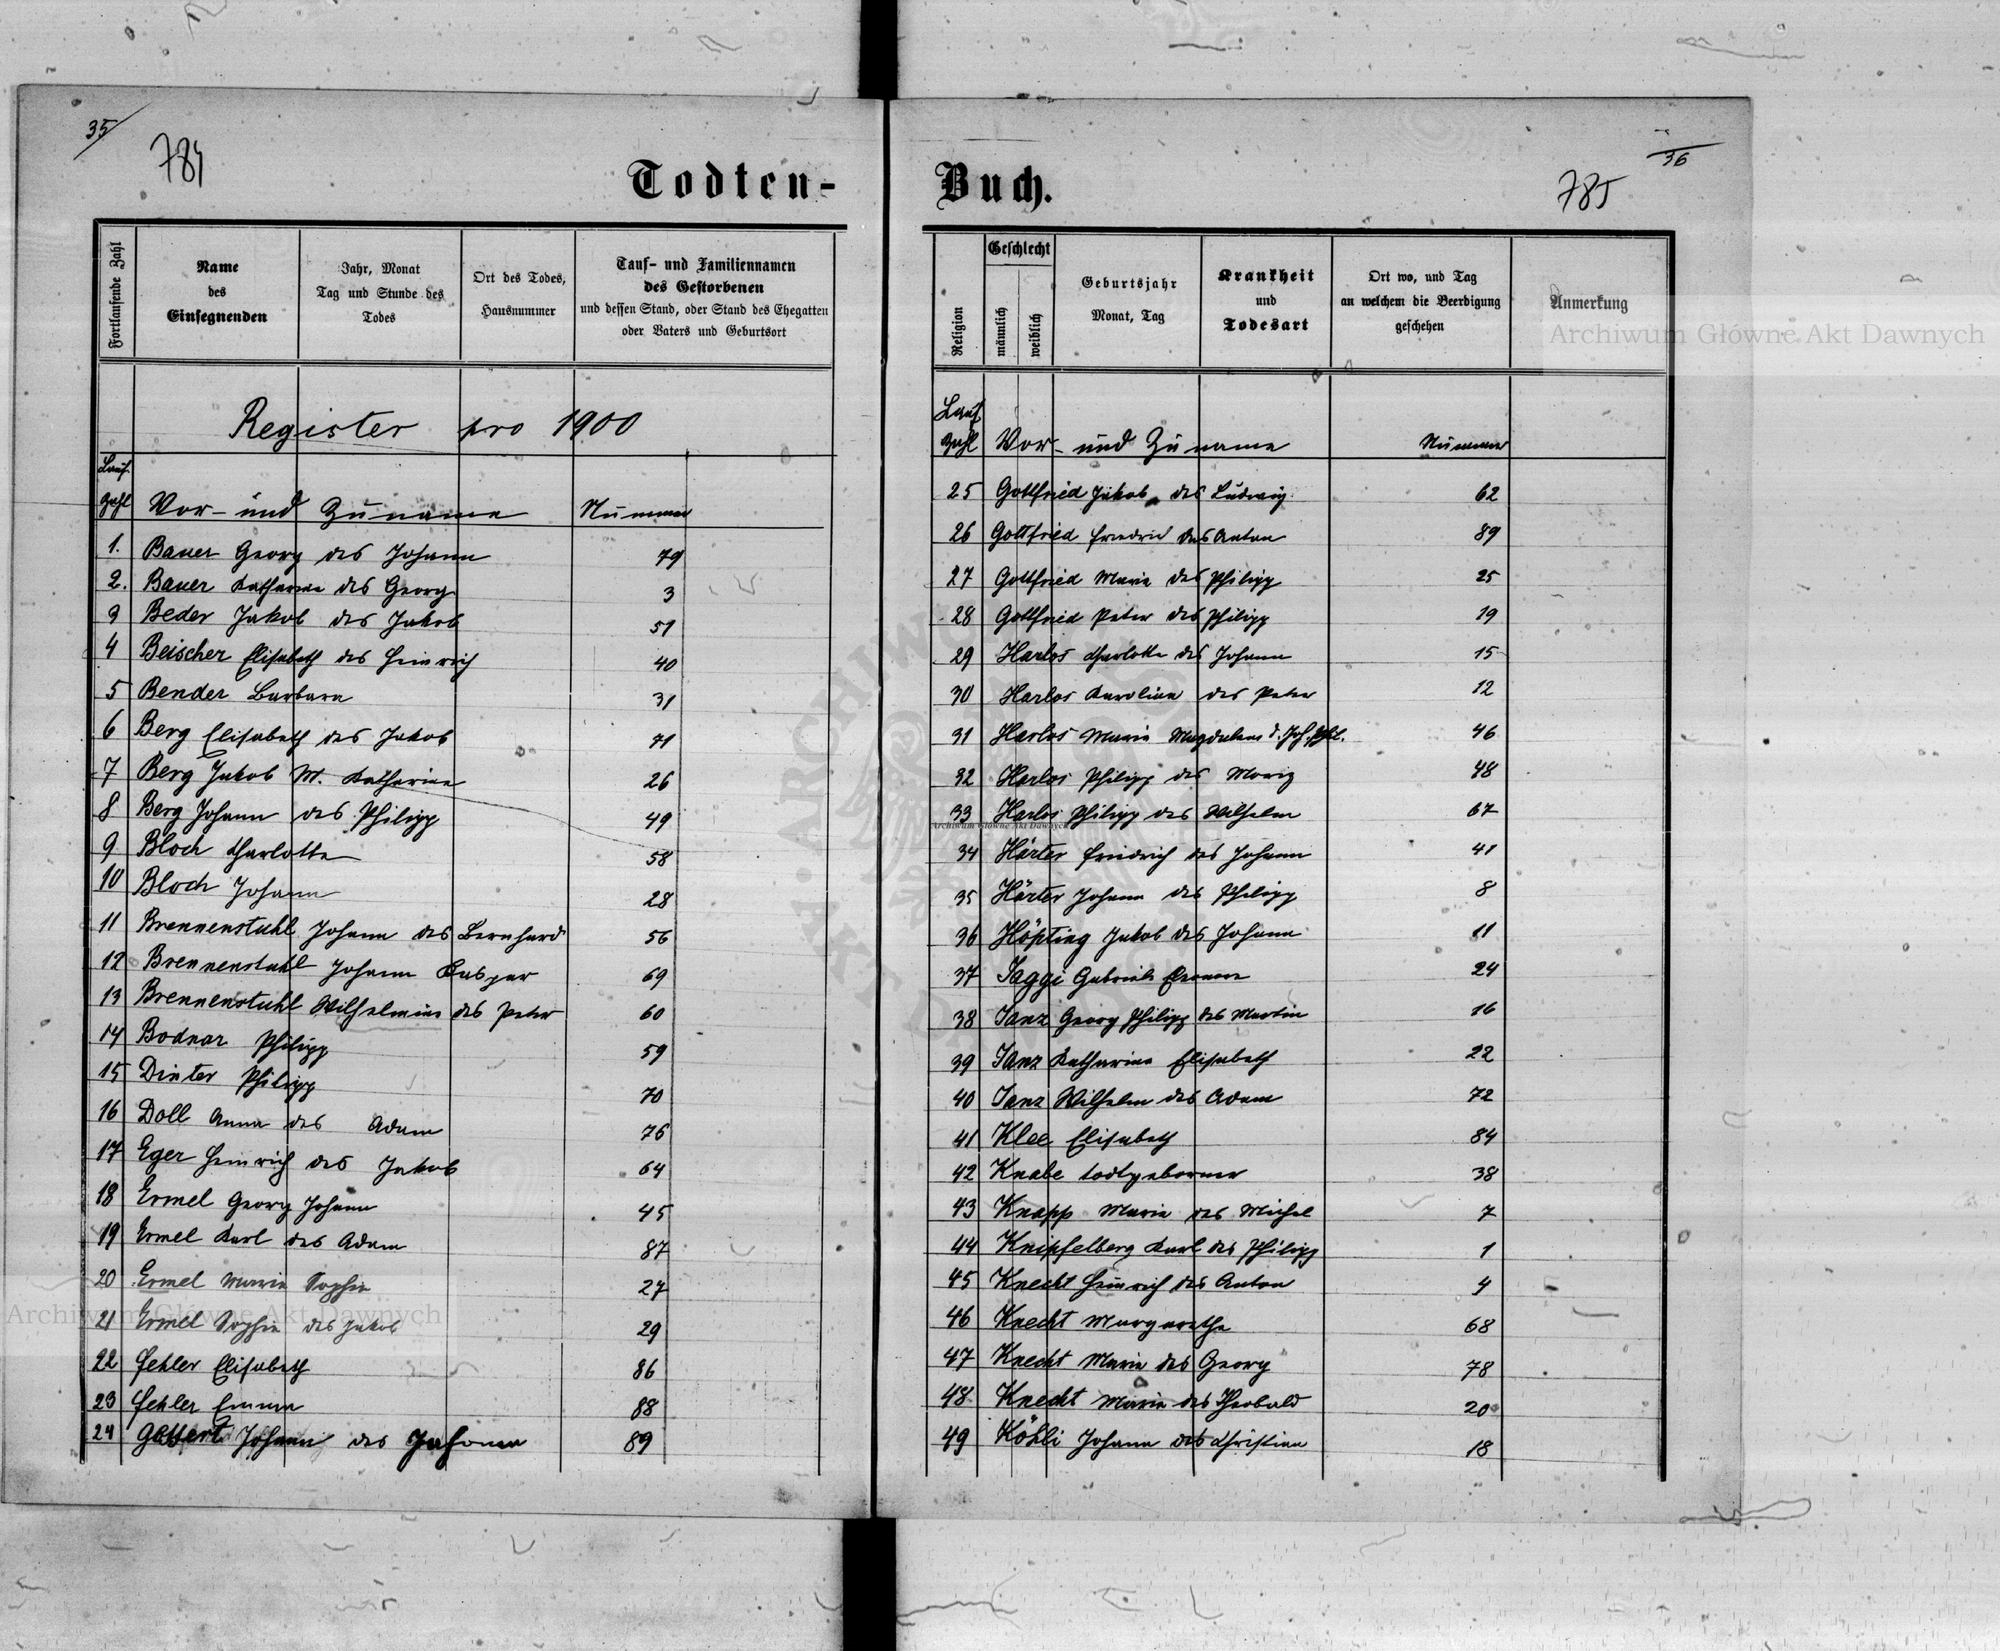 35
784
Todten-
Fortlaufende Zahl
Name
des
Einsegnenden
Jahr, Monat
Tag und Stunde des
Todes
Ort des Todes,
Hausnummer
Tauf- und Familiennamen
des Gestorbenen
und dessen Stand, oder Stand des Ehegatten
oder Vaters und Geburtsort
Register pro 1900
Lauf.
Zahl Vor- und Zuname Nummer
1. Bauer Georg des Johann 79
2. Bauer Katharina des Georg 3
3 Beder Jakob des Jakob 51
4 Beischer Elisabeth des Heinrich 40
5 Bender Barbara 31
6 Berg Elisabeth des Jakob 71
7 Berg Jakob M. Katharina 26
8 Berg Johann des Philipp 49
9 Bloch Charlotte 58
10 Bloch Johann 28
11 Brennenstuhl Johann des Bernhard 56
12 Brennenstuhl Johann Kaspar 69
13 Brennenstuhl Wilhelmine des Peter 60
14 Bodnar Philipp 59
15 Dinter Philipp 70
16 Doll Anna des Adam 76
17 Eger Heinrich des Jakob 64
18 Ermel Georg Johann 45
19 Ermel Karl des Adam 87
20 Ermel Maria Sophie 27
21 Ermel Sophie des Jakob 29
22 Fehler Elisabeth 86
23 Fehler Emma 88
24 Johann des Johann 89
36
785
Buch.
Religion
Geschlecht
männlich
weiblich
Geburtsjahr
Monat, Tag
Krankheit
und
Todesart
Ort wo, und Tag
an welchem die Beerdigung
geschehen
Anmerkung
Lauf.
Zahl Vor- und Zuname Nummer
25 Gottfried Jakob des Ludwig 62
26 Gottfried Friedrich des Anton 89
27 Gottfried Maria des Philipp 25
28 Gottfried Peter des Philipp 19
29 Harlos Charlotte des Johann 15
30 Harlos Karolina des Peter 12
31 Harlos Maria Magdalena d. Joh. Phil. 46
32 Harlos Philipp des Moriz 48
33 Harlos Philipp des Wilhelm 67
34 Härter Friedrich des Johann 41
35 Härter Johann des Philipp 8
36 Höpting Jakob des Johann 11
37 Jaggi Gabriele 24
38 Janz Georg Philipp des Martin 16
39 Janz Katharina Elisabeth 22
40 Janz Wilhelm des Adam 72
41 Klee Elisabeth 84
42 Knabe todtgeborner 38
43 Knapp Maria des Michel 7
44 Knipfelberg Karl des Philipp 1
45 Knecht Heinrich des Anton 4
46 Knecht Margarethe 68
47 Knecht Maria des Georg 78
48 Knecht Maria des Theobald 20
49 Köhli Johann des Christian 18
Archiwum Główne Akt Dawnych
Archiwum Główne Akt Dawnych
Archiwum Główne Akt Dawnych